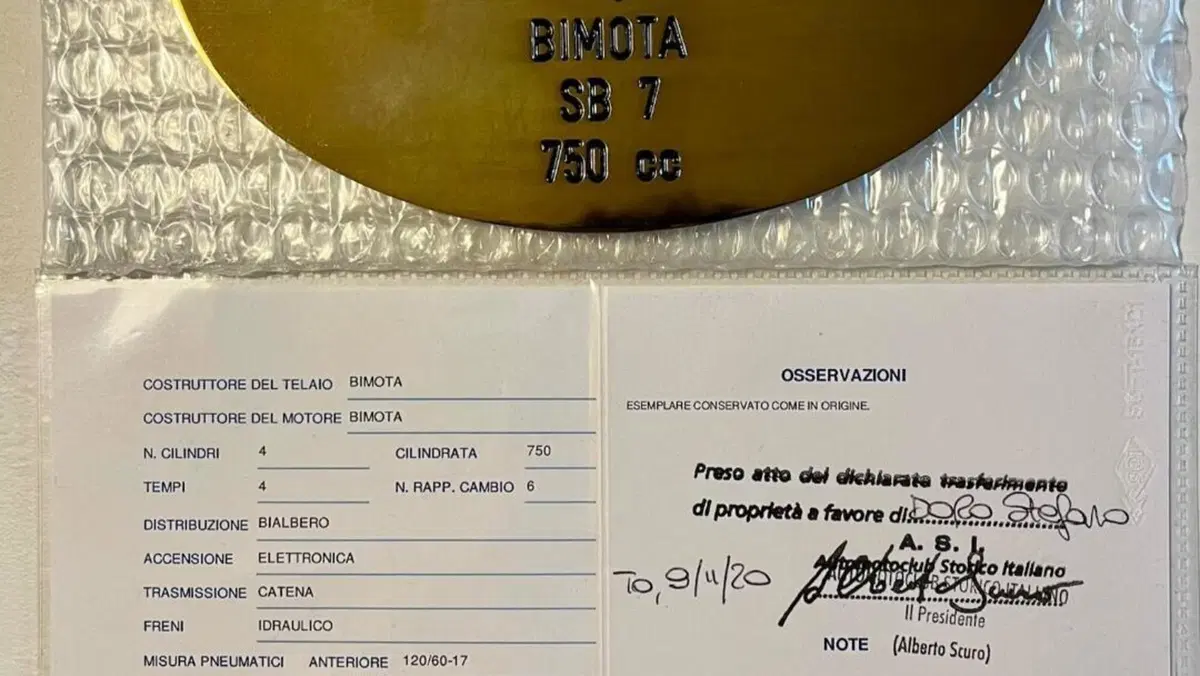 BIMOTA
SB 7
750 cc
COSTRUTTORE DEL TELAIO BIMOTA
COSTRUTTORE DEL MOTORE BIMOTA
N. CILINDRI 4 CILINDRATA 750
TEMPI 4 N. RAPP. CAMBIO 6
DISTRIBUZIONE BIALBERO
ACCENSIONE ELETTRONICA
TRASMISSIONE CATENA
FRENI IDRAULICO
MISURA PNEUMATICI ANTERIORE 120/60-17
OSSERVAZIONI
ESEMPLARE CONSERVATO COME IN ORIGINE.
Preso atto del dichiarato trasferimento
di proprietà a favore di Stefano
A. S. I.
Automotoclub Storico Italiano
AUTOMOTOCLUB STORICO ITALIANO
To, 9/11/20
Il Presidente
NOTE (Alberto Scuro)